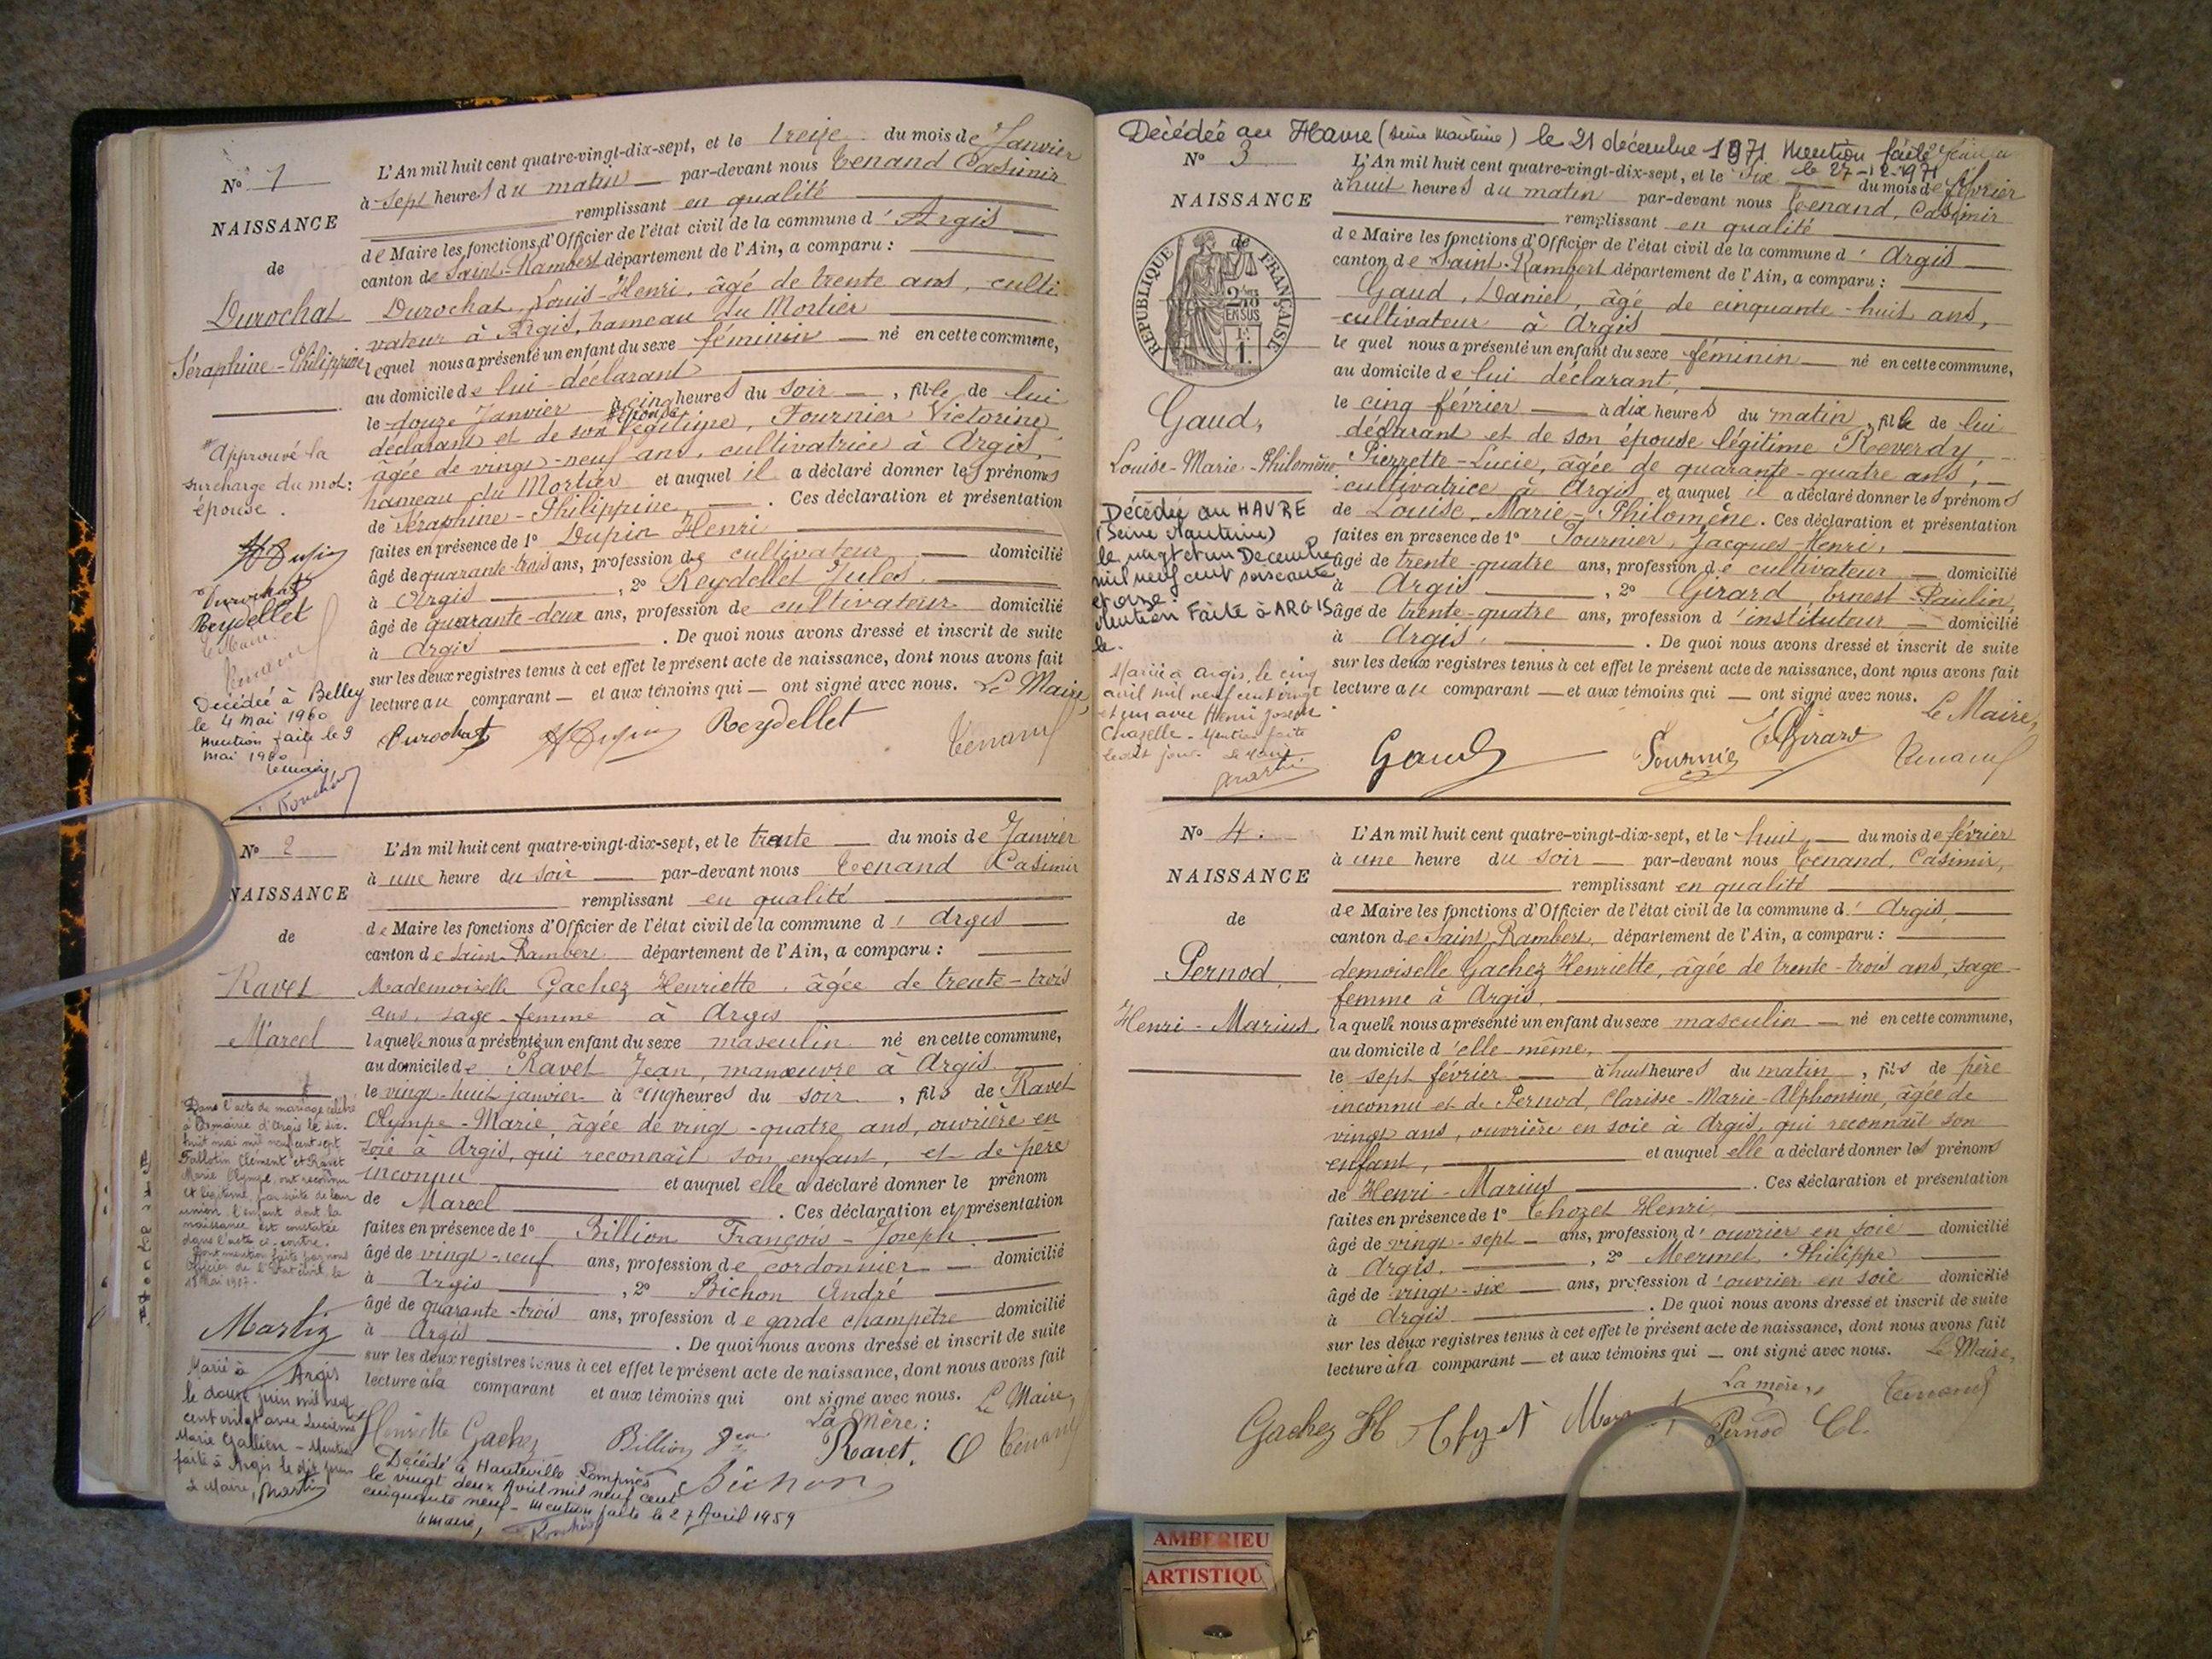 N° 1
NAISSANCE
de
Durochat
Séraphine-Philippine
*Approuvé la
surcharge du mot:
épouse.
Durochat
Reydellet
le Maire
Décédé à Belley
le 4 mai 1960
mention faite le 9
mai 1960
Le maire
L'An mil huit cent quatre-vingt-dix-sept, et le treize du mois de Janvier
à sept heures du matin — par-devant nous Tenand Casimir
remplissant en qualité
de Maire les fonctions d'Officier de l'état civil de la commune d'Argis
canton de Saint-Rambert département de l'Ain, a comparu :
Durochat, Louis-Henri, âgé de trente ans, culti-
vateur à Argis, hameau du Mortier
lequel nous a présenté un enfant du sexe féminin — né en cette commune,
au domicile de lui déclarant
le douze Janvier à cinq heures du soir —, fille de lui
déclarant et de son *épouse légitime, Fournier Victorine,
âgée de vingt-neuf ans, cultivatrice à Argis,
hameau du Mortier et auquel il a déclaré donner les prénoms
de Séraphine-Philippine —. Ces déclaration et présentation
faites en présence de 1° Dupin Henri
âgé de quarante-trois ans, profession de cultivateur — domicilié
à Argis —, 2° Reydellet Jules
âgé de quarante-deux ans, profession de cultivateur domicilié
à Argis —. De quoi nous avons dressé et inscrit de suite
sur les deux registres tenus à cet effet le présent acte de naissance, dont nous avons fait
lecture au comparant — et aux témoins qui — ont signé avec nous. Le Maire,
Durochat Reydellet Tenand
N° 2
NAISSANCE
de
Ravet
Marcel
Dans l'acte de mariage célébré
à la mairie d'Argis le dix-
huit mai mil neuf cent sept
Fallotin Clément et Ravet
Marie Olympe ont reconnu
et légitimé, par suite de leur
union, l'enfant dont la
naissance est constatée
dans l'acte ci-contre.
Dont mention faite par nous
Officier de l'état civil, le
18 Mai 1907.
Martin
Marié à Argis
le douze juin mil neuf
cent vingt avec Lucienne
Marie Gallien - Mention
faite à Argis le dix juin
Le Maire, Martin
L'An mil huit cent quatre-vingt-dix-sept, et le trente — du mois de Janvier
à une heure du soir — par-devant nous Tenand Casimir
remplissant en qualité
de Maire les fonctions d'Officier de l'état civil de la commune d'Argis
canton de Saint-Rambert département de l'Ain, a comparu :
Mademoiselle Gachez Henriette, âgée de trente-trois
ans, sage-femme à Argis
laquelle nous a présenté un enfant du sexe masculin né en cette commune,
au domicile de Ravet Jean, manœuvre à Argis
le vingt-huit janvier à cinq heures du soir, fils de Ravet
Olympe-Marie, âgée de vingt-quatre ans, ouvrière en
soie à Argis, qui reconnaît son enfant, et de père
inconnu — et auquel elle a déclaré donner le prénom
de Marcel —. Ces déclaration et présentation
faites en présence de 1° Billion François-Joseph
âgé de vingt-neuf ans, profession de cordonnier — domicilié
à Argis —, 2° Bichon André
âgé de quarante-trois ans, profession de garde champêtre domicilié
à Argis —. De quoi nous avons dressé et inscrit de suite
sur les deux registres tenus à cet effet le présent acte de naissance, dont nous avons fait
lecture à la comparant et aux témoins qui ont signé avec nous. Le Maire,
La Mère:
Henriette Gachez Billion Ravet. O Tenand
Bichon
Décédé à Hauteville-Lompnes
le vingt deux Avril mil neuf cent
cinquante neuf - mention faite le 27 Avril 1959
Le maire,
Décédée au Havre (Seine Maritime) le 21 décembre 1971 Mention faite
le 27-12-1971
N° 3
NAISSANCE
de
RÉPUBLIQUE FRANÇAISE
Gaud,
Louise-Marie-Philomène
Décédée au HAVRE
(Seine Maritime)
le vingt et un Decembre
mil neuf cent soixante
et onze
Mention Faite à ARGIS
le.
Mariée à Argis, le cinq
avril mil neuf cent vingt
et un avec Henri Joseph
Chazelle - Mention faite
Le Maire
Martin
L'An mil huit cent quatre-vingt-dix-sept, et le six du mois de février
à huit heures du matin par-devant nous Tenand, Casimir
remplissant en qualité
de Maire les fonctions d'Officier de l'état civil de la commune d'Argis
canton de Saint-Rambert département de l'Ain, a comparu :
Gaud, Daniel, âgé de cinquante-huit ans,
cultivateur à Argis
lequel nous a présenté un enfant du sexe féminin — né en cette commune,
au domicile de lui déclarant,
le cinq février — à dix heures du matin, fille de lui
déclarant et de son épouse légitime Reverdy
Pierrette-Lucie, âgée de quarante-quatre ans,
cultivatrice à Argis et auquel il a déclaré donner les prénoms
de Louise, Marie-Philomène. Ces déclaration et présentation
faites en présence de 1° Fournier, Jacques-Henri,
âgé de trente-quatre ans, profession de cultivateur — domicilié
à Argis —, 2° Girard, Ernest-Paulin,
âgé de trente-quatre ans, profession d'instituteur — domicilié
à Argis, —. De quoi nous avons dressé et inscrit de suite
sur les deux registres tenus à cet effet le présent acte de naissance, dont nous avons fait
lecture au comparant — et aux témoins qui — ont signé avec nous. Le Maire,
Gaud Fournier EGirard Tenand
N° 4.
NAISSANCE
de
Pernod,
Henri-Marius,
L'An mil huit cent quatre-vingt-dix-sept, et le huit — du mois de février
à une heure du soir — par-devant nous Tenand, Casimir,
remplissant en qualité
de Maire les fonctions d'Officier de l'état civil de la commune d'Argis,
canton de Saint Rambert, département de l'Ain, a comparu :
demoiselle Gachez Henriette, âgée de trente-trois ans, sage-
femme à Argis,
laquelle nous a présenté un enfant du sexe masculin — né en cette commune,
au domicile d'elle-même,
le sept février — à huit heures du matin, fils de père
inconnu et de Pernod, Clarisse-Marie-Alphonsine, âgée de
vingt ans, ouvrière en soie à Argis, qui reconnaît son
enfant, — et auquel elle a déclaré donner les prénoms
de Henri-Marius —. Ces déclaration et présentation
faites en présence de 1° Chozet Henri
âgé de vingt-sept — ans, profession d'ouvrier en soie domicilié
à Argis. —, 2° Mermet, Philippe
âgé de vingt-six — ans, profession d'ouvrier en soie domicilié
à Argis —. De quoi nous avons dressé et inscrit de suite
sur les deux registres tenus à cet effet le présent acte de naissance, dont nous avons fait
lecture à la comparant — et aux témoins qui — ont signé avec nous. Le Maire,
La mère,
Gachez H Pernod Cl. Tenand
AMBERIEU
ARTISTIQU